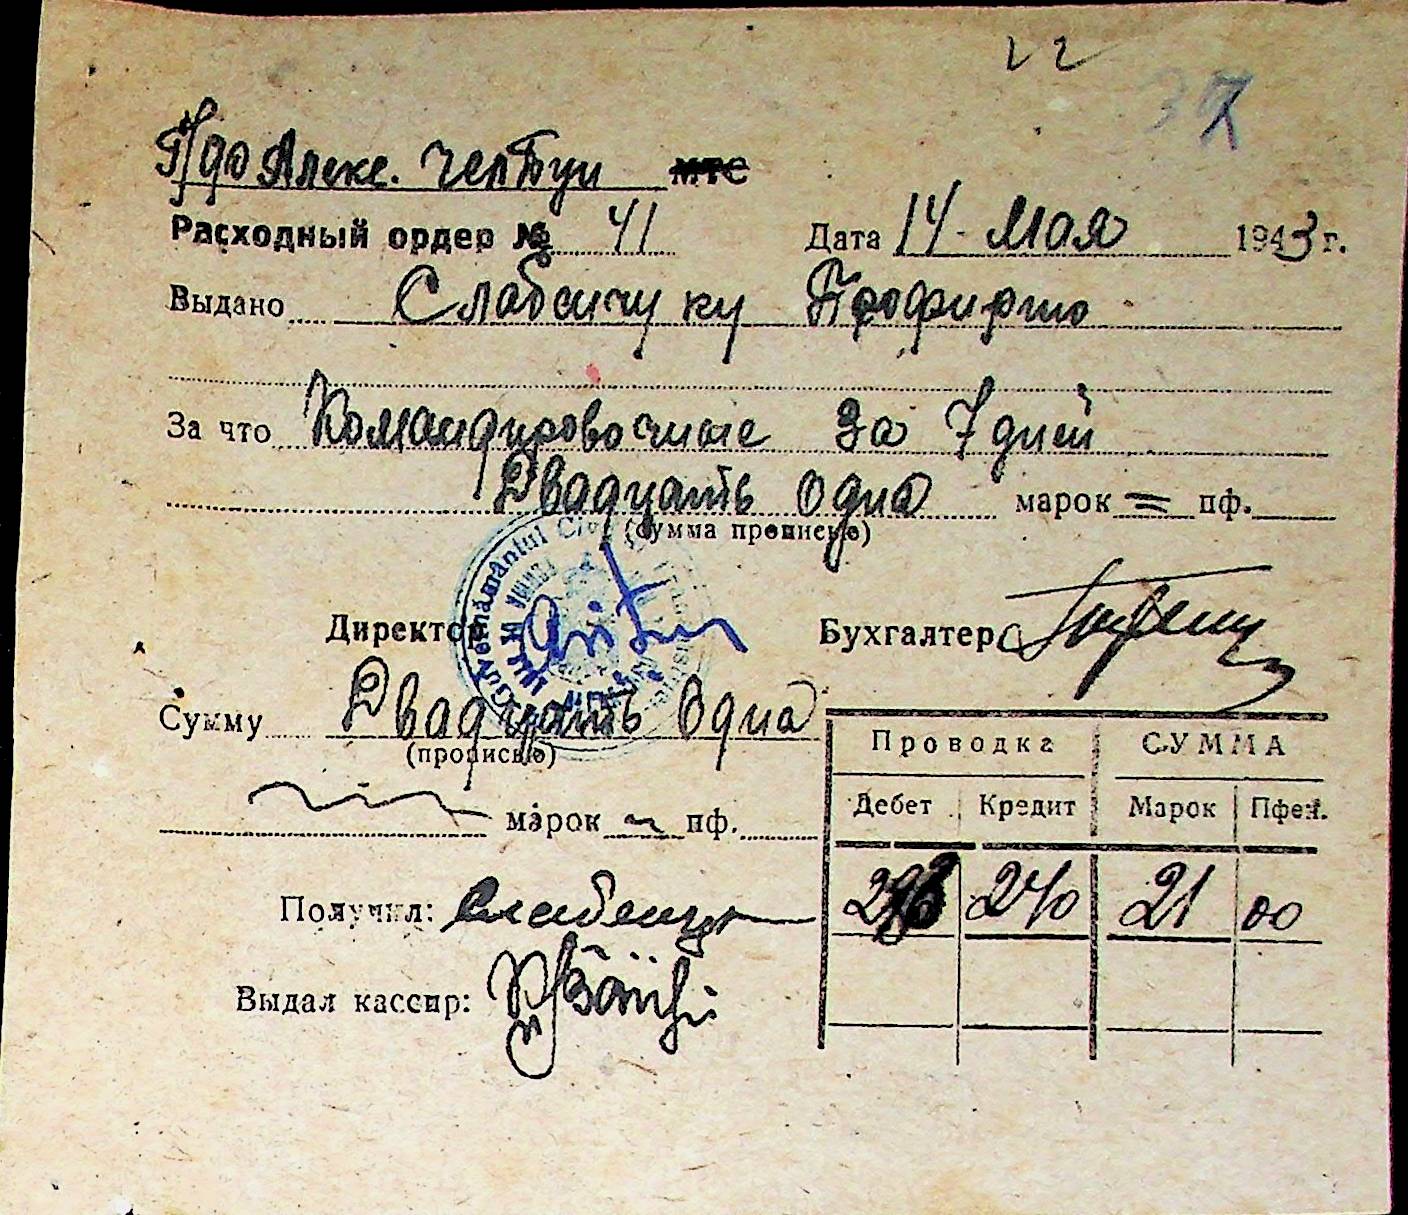 22
37
Алекс. МТС
Расходный ордер № 41 Дата 14 Мая 1943 г.
Выдано Слабенчуку Профирию
За что Командировочные за 7 дней
Двадцать одна марок = пф.
(сумма прописью)
Guvernământul Civil
Директор Бухгалтер
Сумму Двадцать Одна
(прописью)
марок пф.
Проводка СУММА
Дебет Кредит Марок Пфен.
240 21 00
Получил:
Выдал кассир: